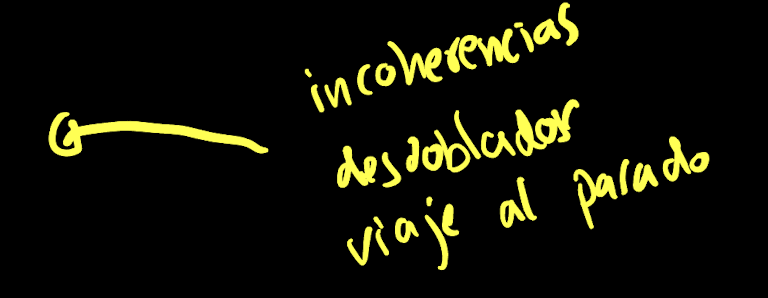 incoherencias
desdoblador
viaje al parado